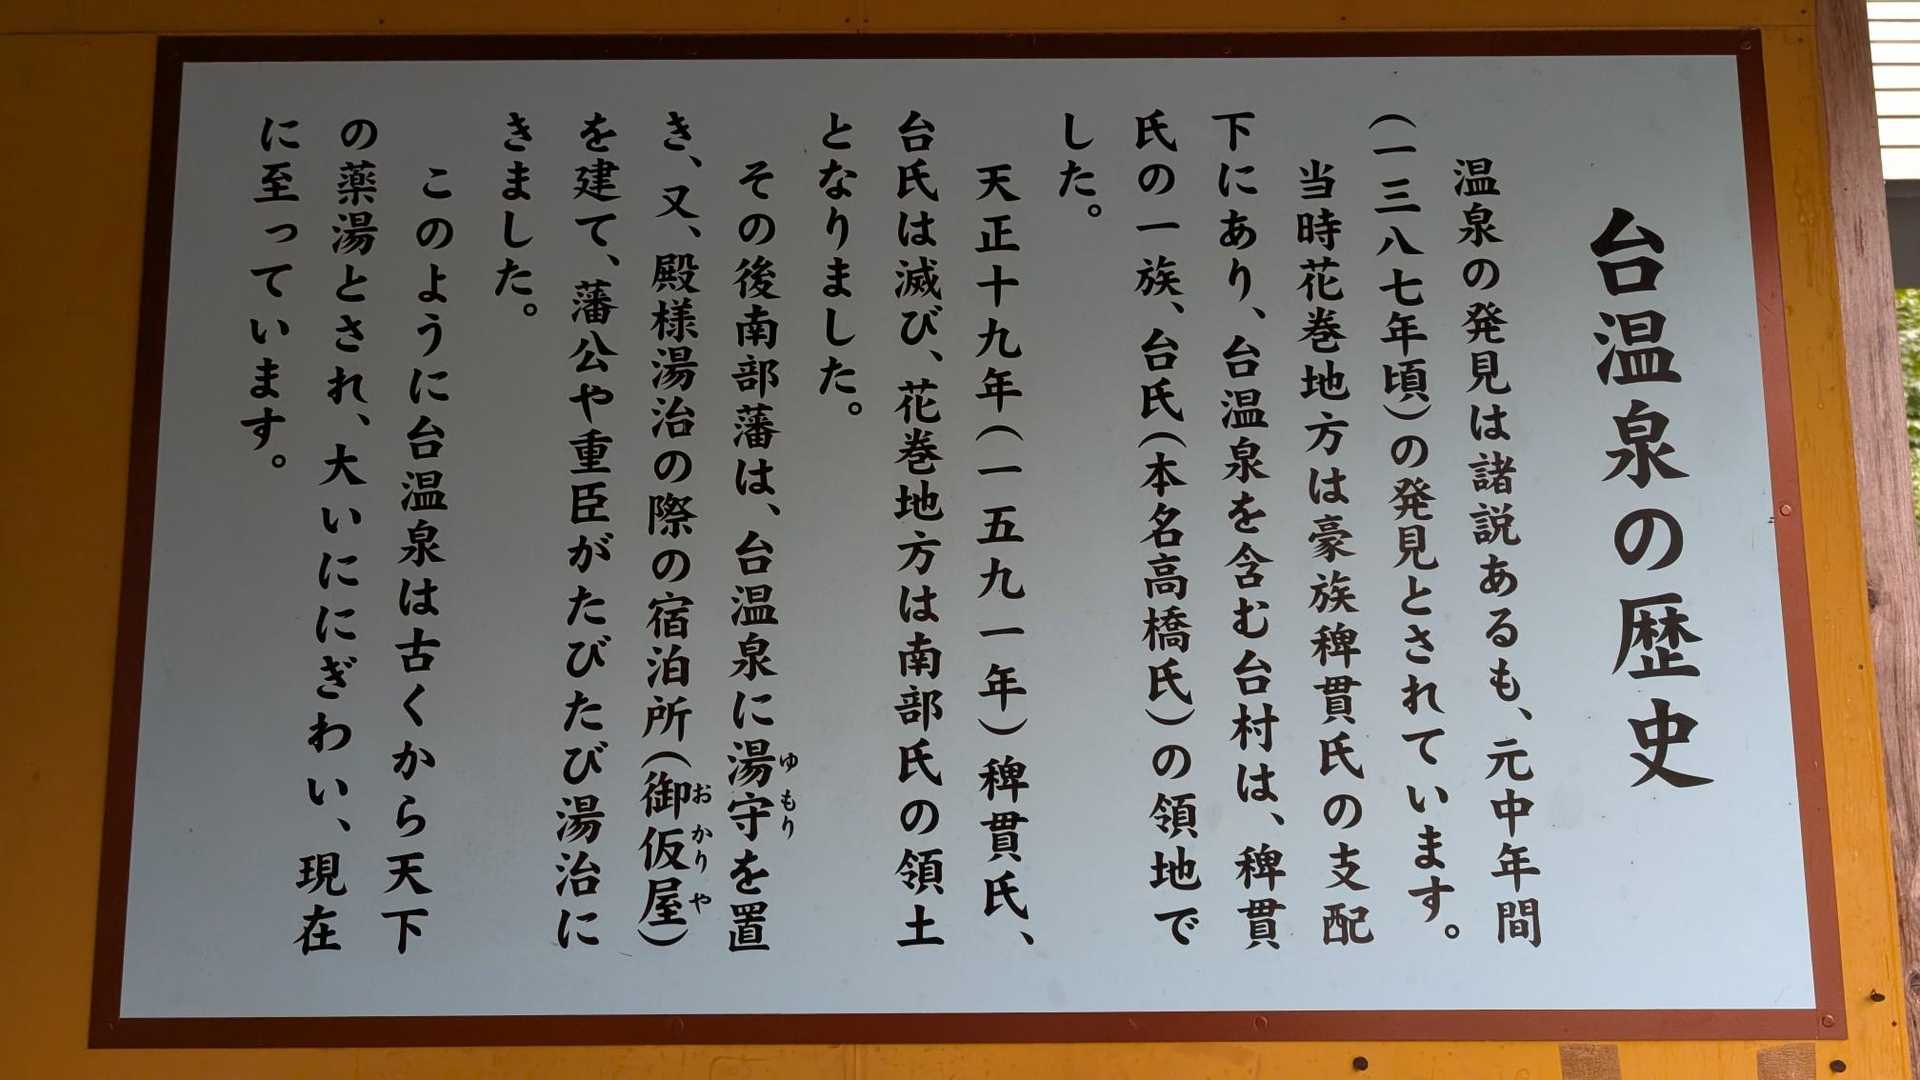 台温泉の歴史
温泉の発見は諸説あるも、元中年間
(一三八七年頃)の発見とされています。
当時花巻地方は豪族稗貫氏の支配
下にあり、台温泉を含む台村は、稗貫
氏の一族、台氏(本名高橋氏)の領地で
した。
天正十九年(一五九一年)稗貫氏、
台氏は滅び、花巻地方は南部氏の領土
となりました。
その後南部藩は、台温泉に湯守を置
ゆもり
き、又、殿様湯治の際の宿泊所(御仮屋)
おかりや
を建て、藩公や重臣がたびたび湯治に
きました。
このように台温泉は古くから天下
の薬湯とされ、大いににぎわい、現在
に至っています。